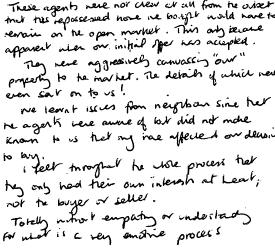 These agents were not clear at all from the outset
that the repossessed home we bought would have to
remain on the open market. This only became
apparent when our initial offer was accepted.
They were aggressively canvassing "our"
property to the market. The details of which were
even sent on to us!
We learnt issues from neighbours since that
the agents were aware of but did not make
known to us that may have affected our decision
to buy.
I felt throughout the whole process that
they only had their own interests at heart,
not the buyer or seller.
Totally without empathy or understanding
for what is a very emotive process